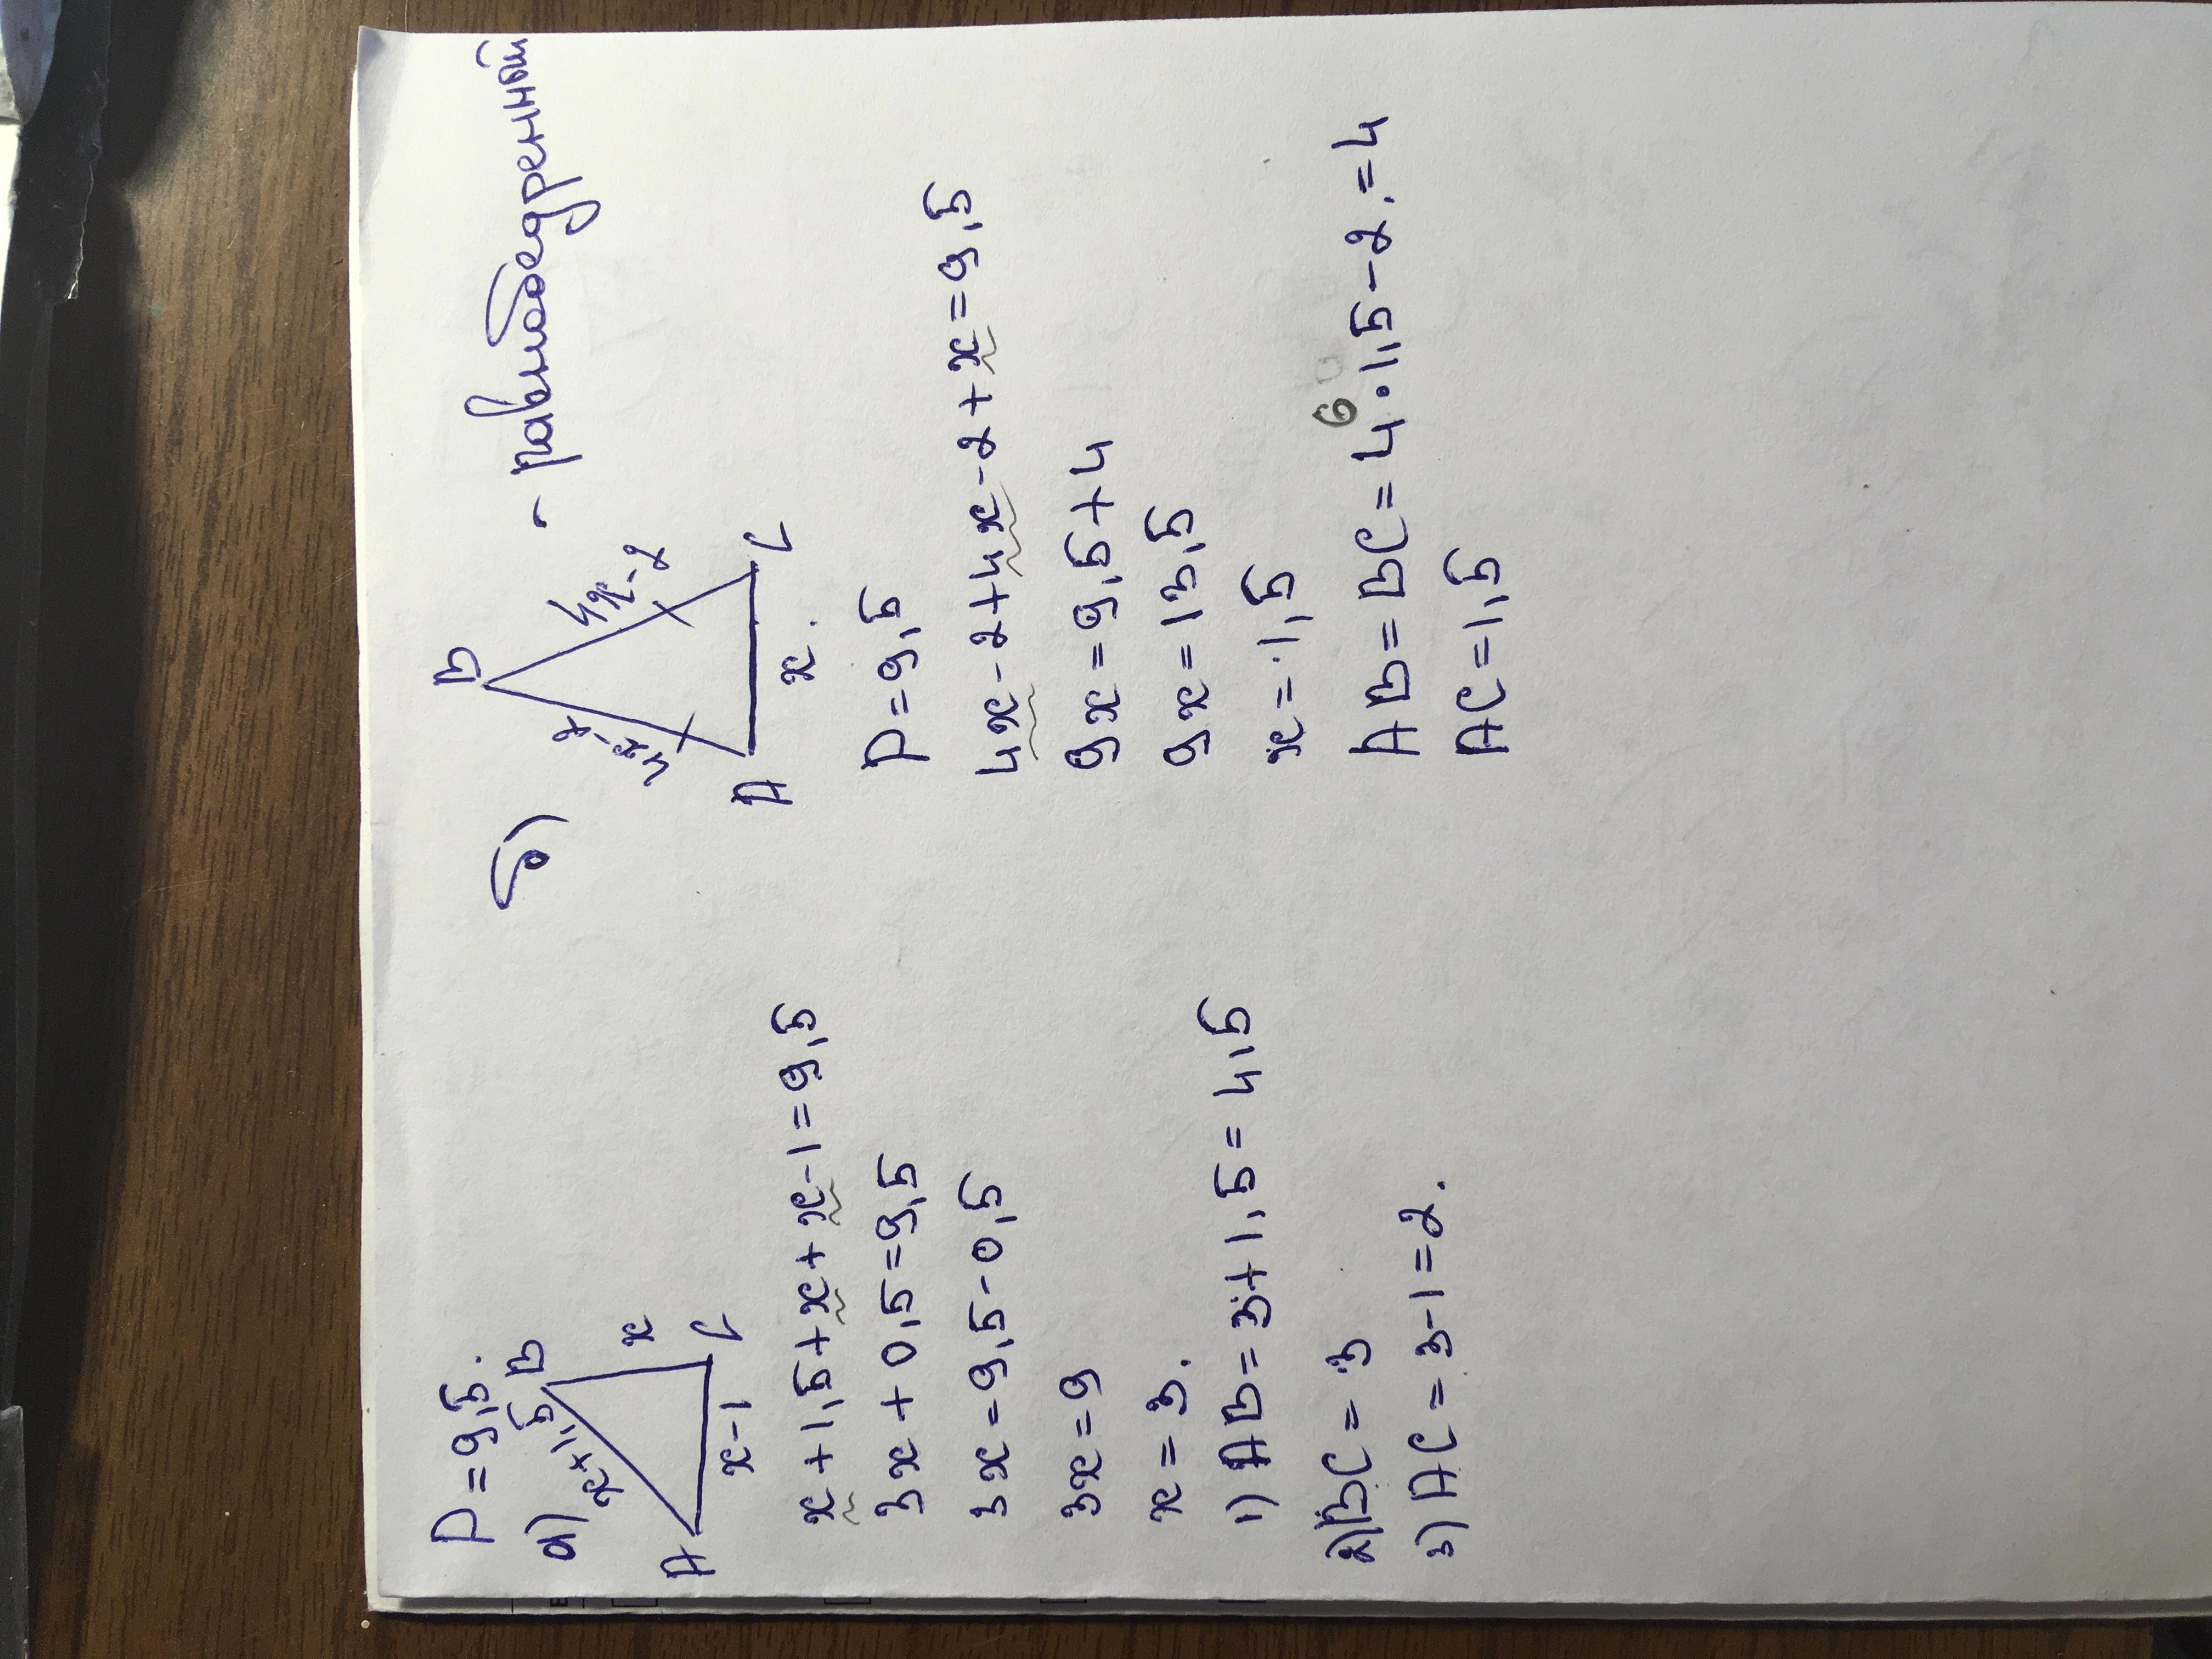 P = 9,5.
а)
x+1,5
B
x
A
x-1
C
x+1,5+x+x-1=9,5
3x+0,5=9,5
3x=9,5-0,5
3x=9
x=3.
1) AB=3+1,5=4,5
2) BC=3
3) AC=3-1=2.
б)
B
- равнобедренный
4x-2
4x-2
A
x.
C
P=9,5
4x-2+4x-2+x=9,5
9x=9,5+4
9x=13,5
x=1,5
6
AB=BC=4·1,5-2=4
AC=1,5